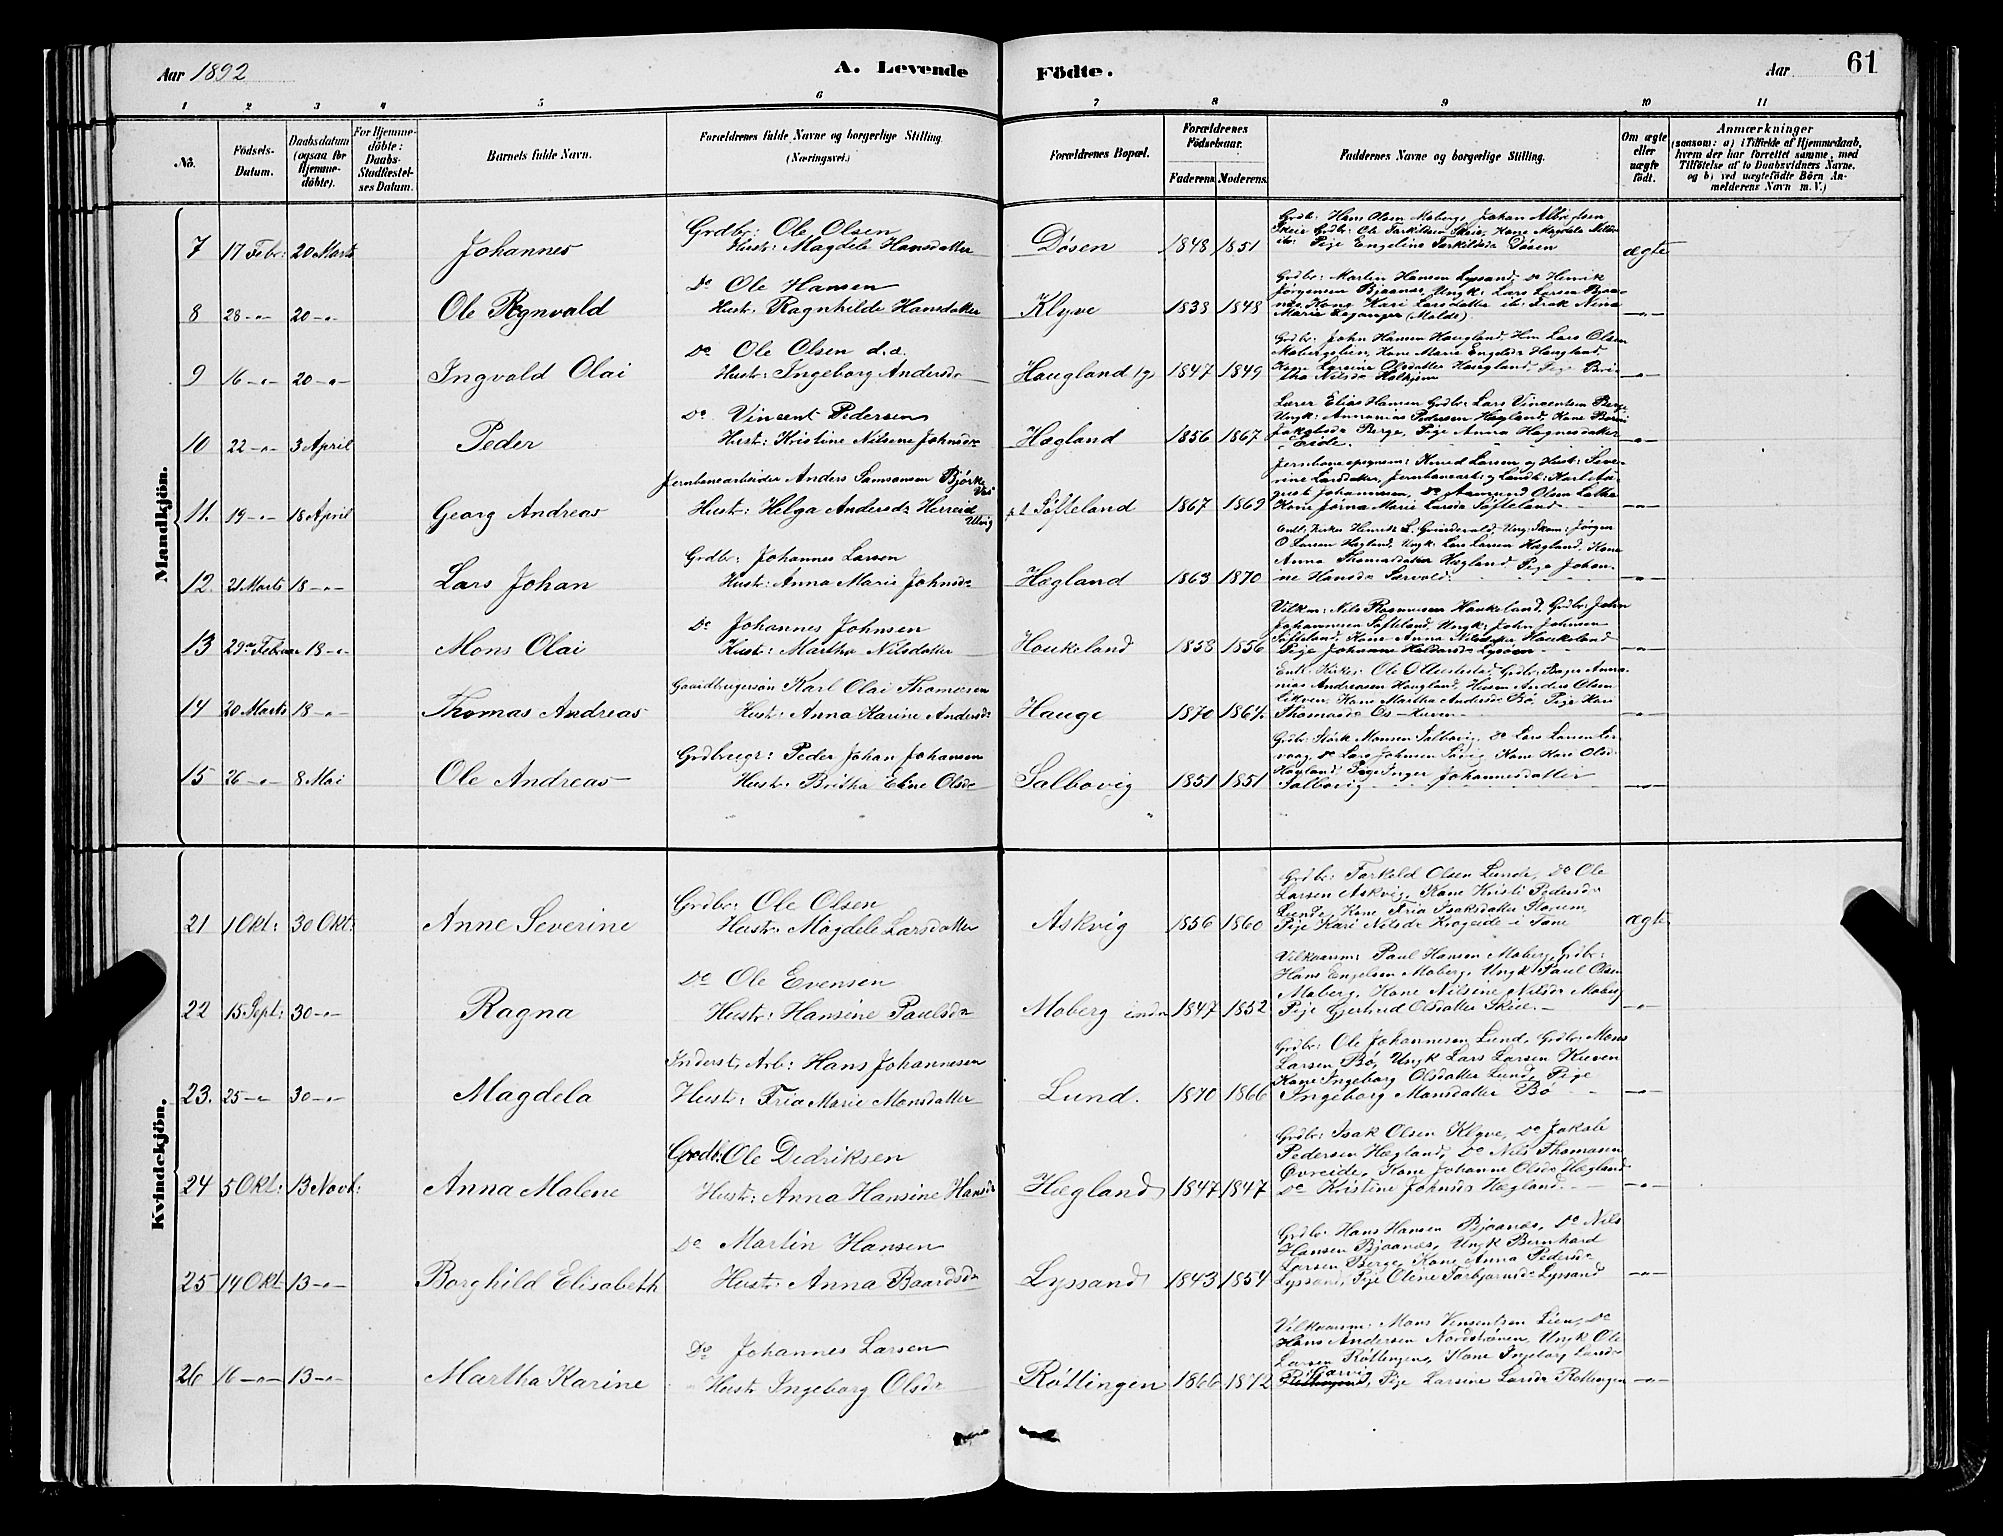 Aar 1892 A. Levende Födte. Aar 61
1 2 3 4 5 6 7 8 9 10 11
No.
Födsels-Datum.
Daabsdatum (ogsaa for Hjemmedöbte).
For Hjemmedöbte: Daabs-Stadfæstelses Datum.
Barnets fulde Navn.
Forældrenes fulde Navne og borgerlige Stilling. (Næringsvei.)
Forældrenes Bopæl.
Forældrenes Födselsaar. Faderens Moderens.
Faddernes Navne og borgerlige Stilling.
Om ægte eller uægte födt.
Anmærkninger (saasom: a) i Tilfælde af Hjemmedaab, hvem der har forrettet samme, med Tilföielse af to Daabsvidners Navne. og b) ved uægtefödte Börn Anmelderens Navn m. V.)
Mandkjön.
7 17 Febr: 20 Marts Johannes
Grdbr: Ole Olsen
Hustr: Magdele Hansdatter
Døsen 1848 1851
Grdb: Hans Olsen Moberg, Johan Albregtsen
Skeie Grdbr: Ole Torkilsen Skeie, Kone Magdela Nilsd
ib: Pige Engeline Torkildsd Døsen
ægte
8 28 -"- 20 -"- Ole Rognvald
Do Ole Hansen
Hustr: Ragnhilde Hansdatter
Klyve 1838 1848
Grdbr: Martin Hansen Lyssand, Do Henrik
Jørgensen Bjaanæs, Ungk: Lars Larsen Bjaa-
næs, Kone Kari Larsdatter ib: Frøk Nina
Marie (Molde)
-"-
9 16 -"- 20 -"- Ingvald Olai
Do Ole Olsen d.a.
Hustr: Ingeborg Andersdr
Haugland 1847 1849
Grdbr: John Hansen Haugland, Hm Lars Olsen
Mobergslien, Kone Marie Engelsdr Haugland
Kone Larsine Olsdatter Haugland, Pige Bri-
tha Nilsdr
-"-
10 22 -"- 3 April Peder
Do Vinsent Pedersen
Hustr: Kristine Nilsine Johnsdr
Hægland 1856 1867
Lærer Elias Hansen Grdbr: Lars Vinsentsen Berge
Ungk: Annanias Pedersen Hægland, Kone
Jakobsdr Berge, Pige Anna Hagnesdatter
Eide.
-"-
11. 19 -"- 18 April Georg Andreas
Jernbanearbeider Anders Samsonsen Bjørke Vos
Hustr: Helga Andersdr Herreid Ulvig
p.t Søfteland 1867 1869
Knud Larsen og Hust: Seve-
rine Larsdatter, Karl Au-
gust Johannesen, Do Aamund Olsen
Kone Jørna Marie Larsdr Søfteland
-"-
12. 21 Marts 18 -"- Lars Johan
Grdbr: Johannes Larsen
Hustr: Anna Marie Johnsdr
Hægland 1863 1870
Henrik L. Grindevold Ung: Skom: Jørgen
O Larsen Hægland, Ungk: Lars Larsen Hægland, Kone
Anna Thomasdatter Hægland Pige Johan-
ne Hansdr Sørvold.
-"-
13 29de Februar 18 -"- Mons Olai
Do Johannes Johnsen
Hustr: Martha Nilsdatter
Haukeland 1858 1856
Vilkm: Nils Rasmussen Haukeland, Grdbr: John
Johannesen Søfteland, Ungk: John Johnsen
Søfteland, Kone Anna Nilsdatter Haukeland
Pige Johanne Haldorsdr Lysøen
-"-
14 20 Marts 18 -"- Thomas Andreas
Gaardbrugersøn Karl Olai Thomasen
Hustr: Anna Karine Andersdr
Hauge 1870 1864
Enk: Kirkes: Ole O Aurlestad, Grdbr: Anna-
nias Andreasen Haugland, Husm Anders Olsen
Kone Martha Andersdr Bø, Pige Kari
Thomasdr Os-Kuven
-"-
15 26 -"- 8 Mai Ole Andreas
Grdbrugr: Peder Johan Johansen
Hustr: Britha Eline Olsdr
Salbovig 1851 1851
Grdbr: Størk Monsen Salbovig, Do Lars Larsen Ler-
vaag, Do Lars Johnsen Søvig, Kone Kari Olsdr
Hægland Pige Inger Johannesdatter
Salbovig
-"-
Kvindekjön.
21 1 Okt: 30 Okt: Anne Severine
Grdbr: Ole Olsen
Hustr: Magdele Larsdatter
Askvig 1856 1860
Grdbr: Torkeld Olsen Lunde, Do Ole
Larsen Askvig, Kone Kristi Pedersdr
Lunde, Kone Fria Isaksdatter Storum,
Pige Kari Nilsdr Krogeide i Fane
ægte
22 15 Sept: 30 -"- Ragna
Do Ole Evensen
Hustr: Hansine Paulsdr
Moberg indr 1847 1852
Vilkaarm: Paul Hansen Moberg, Grdbr:
Hans Engelsen Moberg, Ungk: Paul Olsen
Moberg, Kone Nilsine Nilsdr Moberg
Pige Gjertrud Olsdatter Skeie.
-"-
23. 25 -"- 30 -"- Magdela
Inderst, Arb: Hans Johannesen
Hustr: Fria Marie Monsdatter
Lund. 1870 1866
Grdbr: Ole Johannesen Lund, Grdbr: Mons
Larsen Bø, Ungk Lars Larsen Kuven
Kone Ingeborg Olsdatter Lunde, Pige
Ingeborg Monsdatter Bø
-"-
24 5 Okt: 13 Novb: Anna Malene
Grdb: Ole Didriksen
Hustr: Anna Hansine Hansdr
Hægland 1847 1847
Grdbr: Isak Olsen Klyve, Do Jakob
Pedersen Hægland, Do Nils Thomasen
Øvreide, Kone Johanne Olsdr Hægland
Do Kristine Johnsdr Hægland.
-"-
25 14 Okt 13 -"- Borghild Elisabeth
Do Martin Hansen
Hustr: Anna Baardsdr
Lyssand 1843 1854
Grdbr: Hans Hansen Bjaanæs, Do Nils
Hansen Bjaanæs, Ungk Bernhard
Larsen Berge, Kone Anna Pedersdr
Lyssand, Pige Oline Torbjørnsdr Lyssand
-"-
26 16 -"- 13 -"- Martha Karine
Do Johannes Larsen
Hustr Ingeborg Olsdr
Røttingen 1866 1872
Vilkaarm: Mons Vinsentsen Lien, Do
Hans Andersen Nordstrønen, Ungk Ole
Larsen Røttingen, Kone Ingeborg Larsdr
Pige Larsine Larsdr Røttingen
-"-